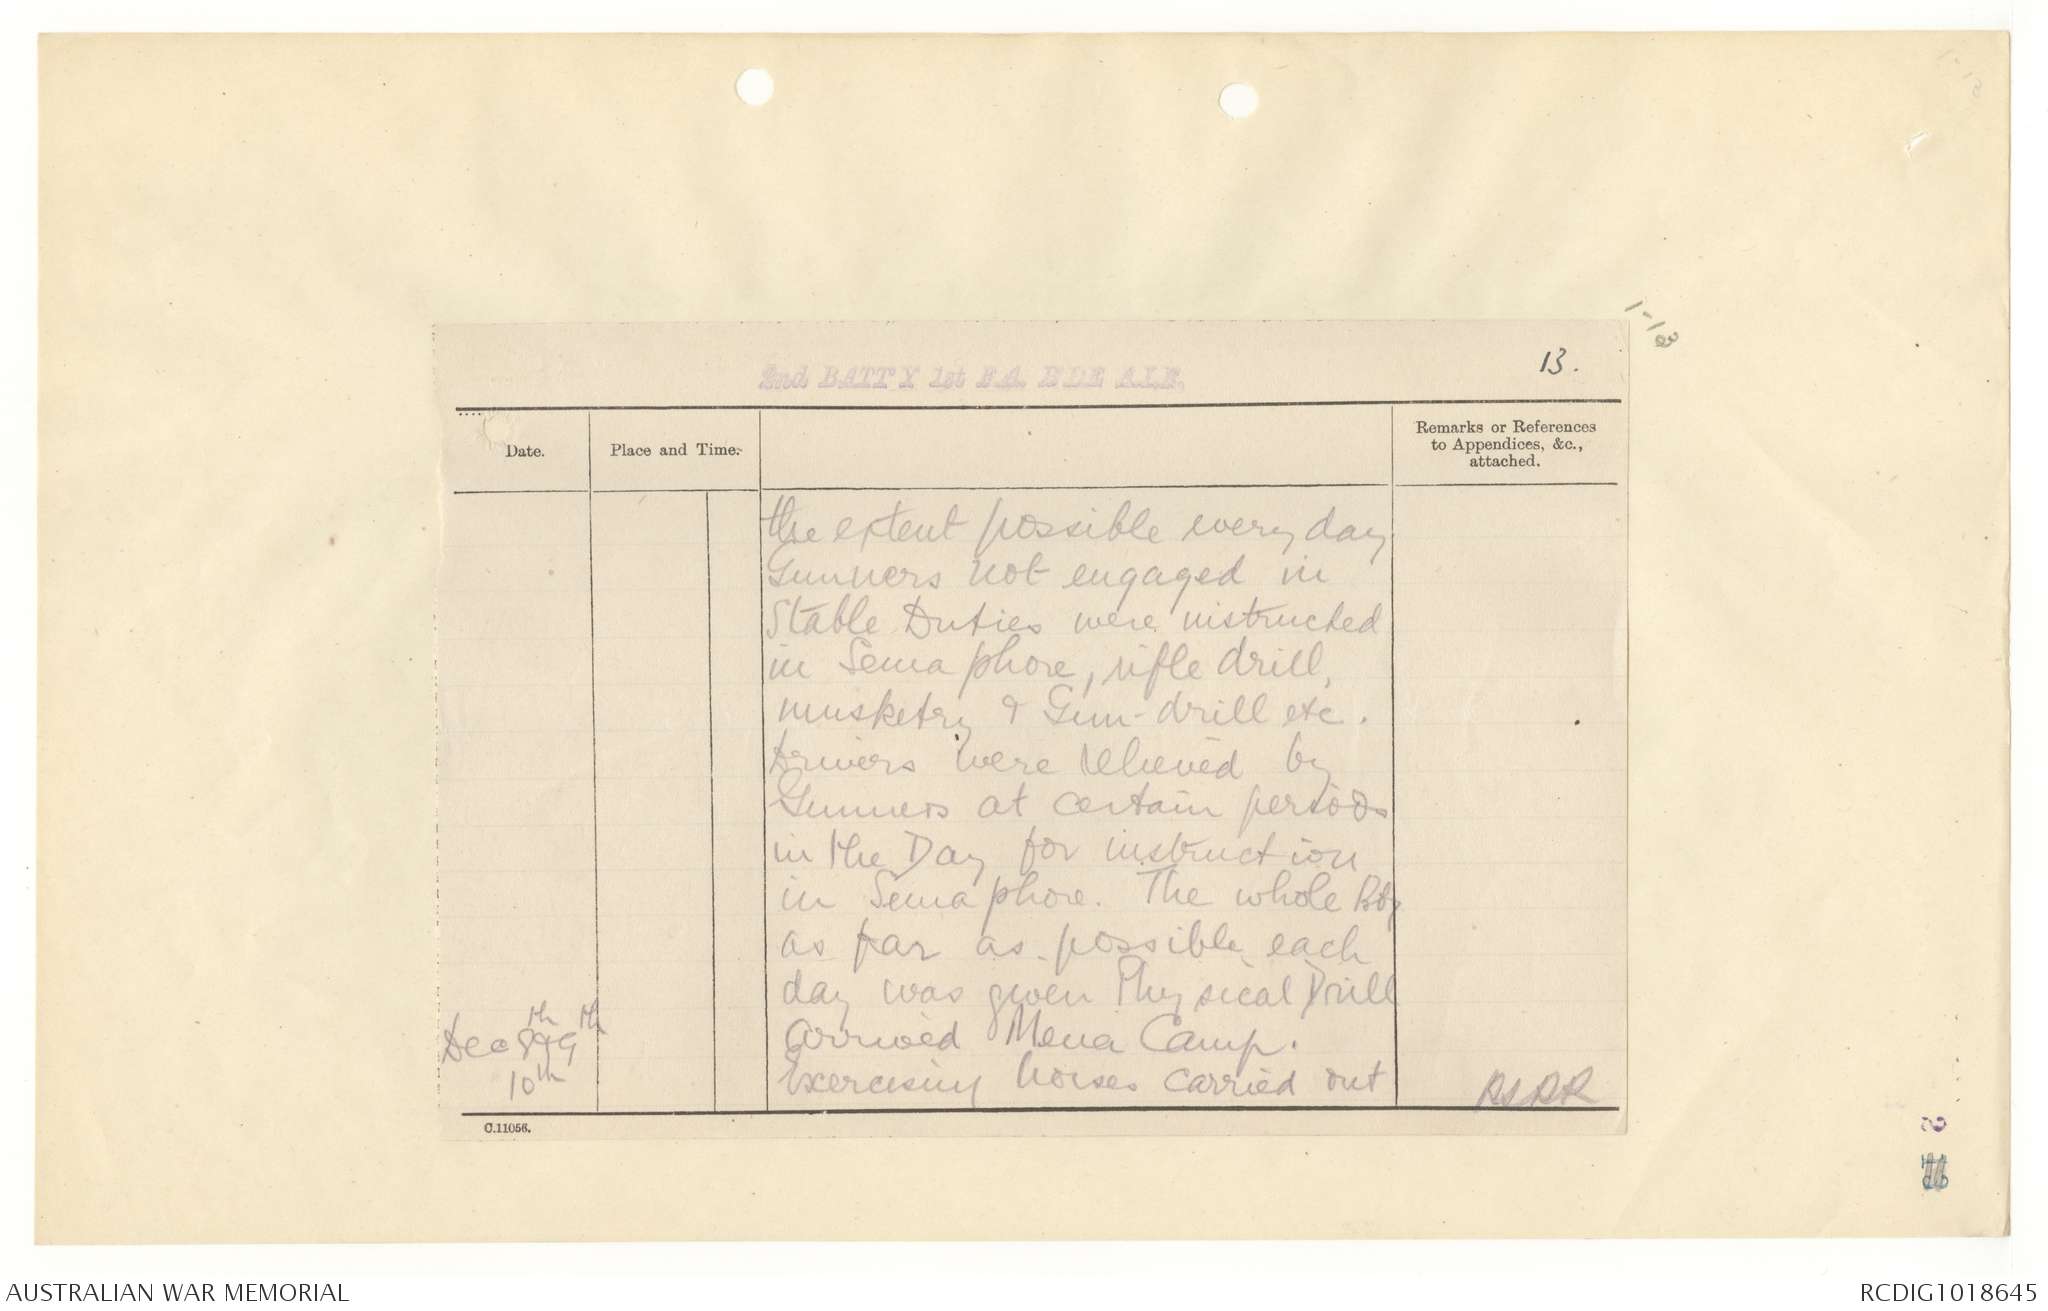 1-13
13.
2nd BATTY 1st F.A. BDE A.I.F.
Date.
Place and Time.
Remarks or References
to Appendices, &c.,
attached.
the extent possible every day
Gunners not engaged in
Stable Duties were instructed
in Semaphore, rifle drill,
musketry & Gun-drill etc.
Drivers were relieved by
Gunners at certain periods
in the Day for instruction
in Semaphore. The whole Bty
as far as possible each
day was given Physical Drill
Dec 8th & 9th
arrived Mena Camp.
10th
Exercising horses carried out
C.11056.
2
AUSTRALIAN WAR MEMORIAL
RCDIG1018645